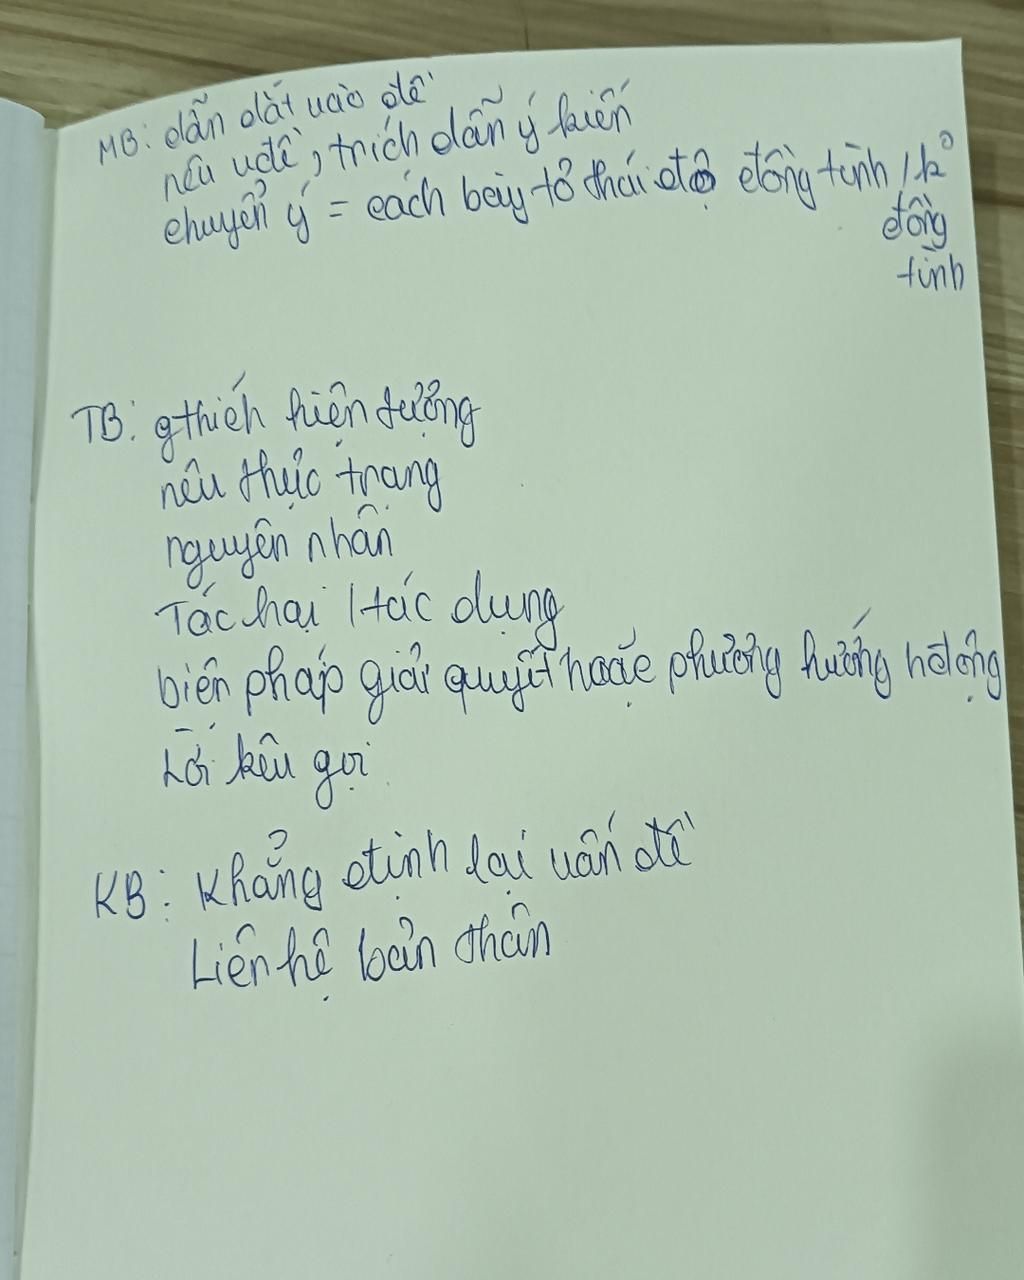 MB: dẫn dắt vào đề
nêu vđề, trích dẫn ý kiến
chuyển ý = cách bày tỏ thái độ đồng tình / k°
đồng
tình
TB: gthích hiện tượng
nêu thực trạng
nguyên nhân
Tác hại / tác dụng
biên pháp giải quyết hoặc phương hướng hđộng
Lời kêu gọi
KB: Khẳng định lại vấn đề
Liên hệ bản thân